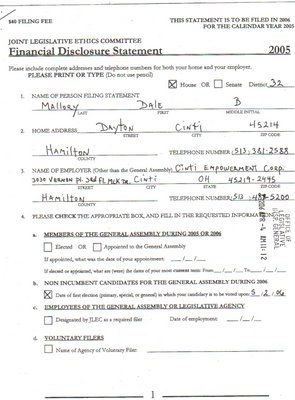 $40 FILING FEE
THIS STATEMENT IS TO BE FILED IN 2006
FOR THE CALENDAR YEAR 2005
JOINT LEGISLATIVE ETHICS COMMITTEE
Financial Disclosure Statement 2005
Please include complete addresses and telephone numbers for both your home and your employer.
PLEASE PRINT OR TYPE (Do not use pencil)
House OR Senate District 32
1. NAME OF PERSON FILING STATEMENT
Mallory Dale B
LAST FIRST MIDDLE INITIAL
2. HOME ADDRESS Dayton Cinti 45214
STREET CITY ZIP CODE
Hamilton TELEPHONE NUMBER 513.381-2588
COUNTY
3. NAME OF EMPLOYER (Other than the General Assembly) Cinti Empowerment Corp.
3030 VERNON Pl Cinti OH 45219-2445
STREET CITY STATE ZIP CODE
Hamilton TELEPHONE NUMBER 513 5200
COUNTY
4. PLEASE CHECK THE APPROPRIATE BOX, AND FILL IN THE REQUESTED INFORMATION
a. MEMBERS OF THE GENERAL ASSEMBLY DURING 2005 OR 2006
Elected OR Appointed to the General Assembly
If appointed, what was the date of your appointment: __/__/__
If elected or appointed, what are (were) the dates of your most current term: From __/__ To __/__
b. NON INCUMBENT CANDIDATES FOR THE GENERAL ASSEMBLY DURING 2006
Date of first election (primary, special, or general) in which your candidacy is to be voted upon: 5/2/06
c. EMPLOYEES OF THE GENERAL ASSEMBLY OR LEGISLATIVE AGENCY
Designated by JLEC as a required filer Date of employment: __/__/__
d. VOLUNTARY FILERS
Name of Agency of Voluntary Filer:
1